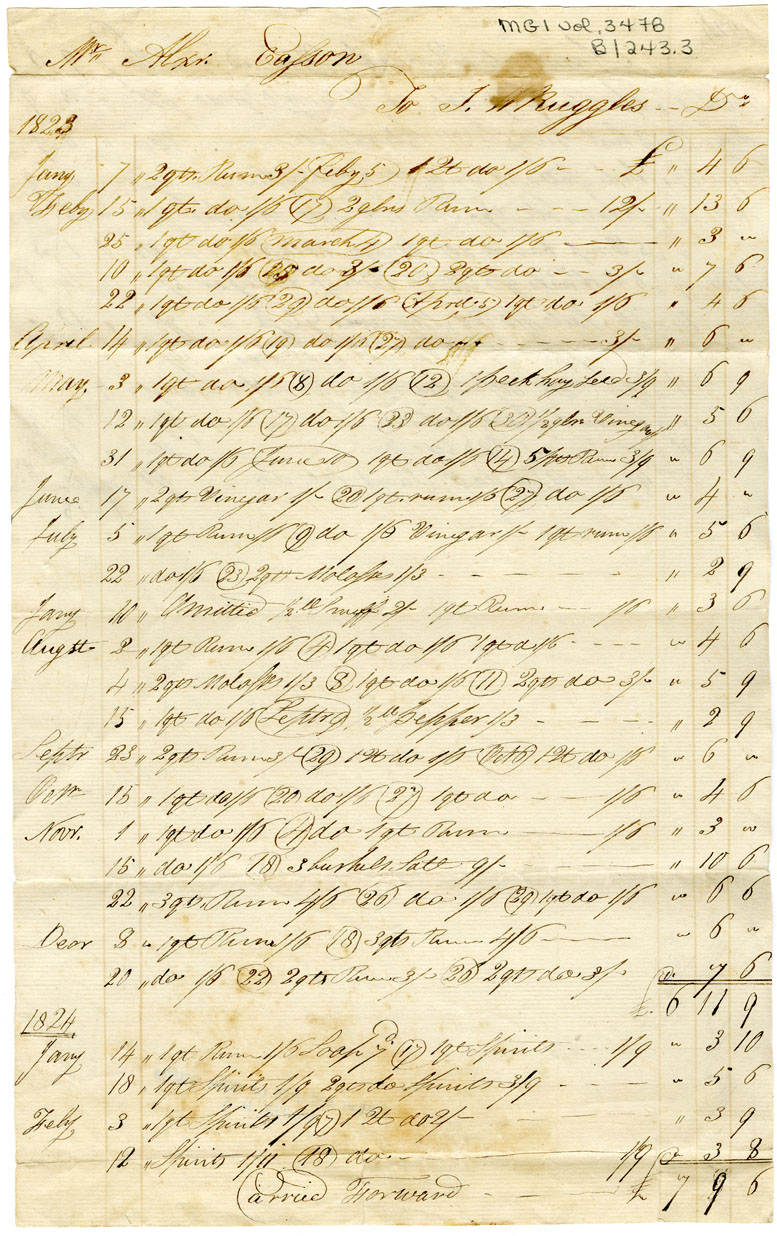 MG1 Vol. 347B
B1243.3
Mr. Alxr. Easson
To T. W Ruggles -- Dr
1823
Jany 7 " 2qts Rum 3/- Feby 5 1 2t do 1/6 -- £ " 4 6
Feby 15 " 1qt do 1/6 (17) 2glns Rum --- 12/- " 13 6
25 " 1qt do 1/6 (March 4) 1qt do 1/6 --- " 3 "
10 " 1qt do 1/6 (15) do 3/- (20) 2qt do -- 3/- " 7 6
22 " 1qt do 1/6 (29) do 1/6 1qt do 1/6 " 4 6
April 14 " 1qt do 1/6 (19) do 1/6 (27) do -- 3/- " 6 "
May 3 " 1qt do 1/6 (8) do 1/6 (12) 1 peck hay seed 3/9 " 6 9
12 " 1qt do 1/6 (17) do 1/6 (23) do 1/6 (30) 1/2 gln Vinegar " 5 6
31 " 1qt do 1/6 (June 10) 1qt do 1/6 (14) Rum 3/9 " 6 9
June 17 " 2qts Vinegar 1/- (20) 1qt rum 1/6 (27) do 1/6 " 4 "
July 5 " 1qt Rum 1/6 (9) do 1/6 Vinegar 1/- 1qt rum 1/6 " 5 6
22 " do 1/6 (23) 2qts Molosses 1/3 ---- " 2 9
Jany 10 " Omitted 1/2 lb Snuff 2/- 1qt Rum -- 1/6 " 3 6
Augst 2 " 1qt Rum 1/6 (4) 1qt do 1/6 1qt do 1/6 -- " 4 6
4 " 2qts Molosses 1/3 (8) 1qt do 1/6 (11) 2qts do 3/- " 5 9
15 " 1qt do 1/6 (Septr 9) 1/2 lb Pepper 1/3 --- " 2 9
Septr 23 " 2qts Rum 3/- (29) 1 2t do 1/6 1 2t do 1/6 " 6 "
15 " 1qt do 1/6 (20) do 1/6 (27) 1qt do --- 1/6 " 4 6
Novr. 1 " 1qt do 1/6 (4) do 1qt Rum --- 1/6 " 3 "
15 " do 1/6 (18) 3 bushels Salt 9/- --- " 10 6
22 " 3qts Rum 4/6 (26) do 1/6 (29) 1qt do 1/6 " 6 6
Decr 8 " 1qt Rum 1/6 (18) 3qts Rum 4/6 --- " 6 "
20 " do 1/6 (22) 2qts Rum 3/- (26) 2qts do 3/- " 7 6
£ 6 11 9
1824
Jany 14 " 1qt Rum 1/6 Soap 7d (17) 1qt Spirits -- 1/9 " 3 10
18 " 1qt Spirits 1/9 2qts do Spirits 3/9 --- " 5 6
Feby 3 " 1qt Spirits 1/9 (7) 1 2t do 2/- " 3 9
12 " Spirits 1/11 (18) do --- 1/9 " 3 8
Carried Forward --- £ 7 9 6